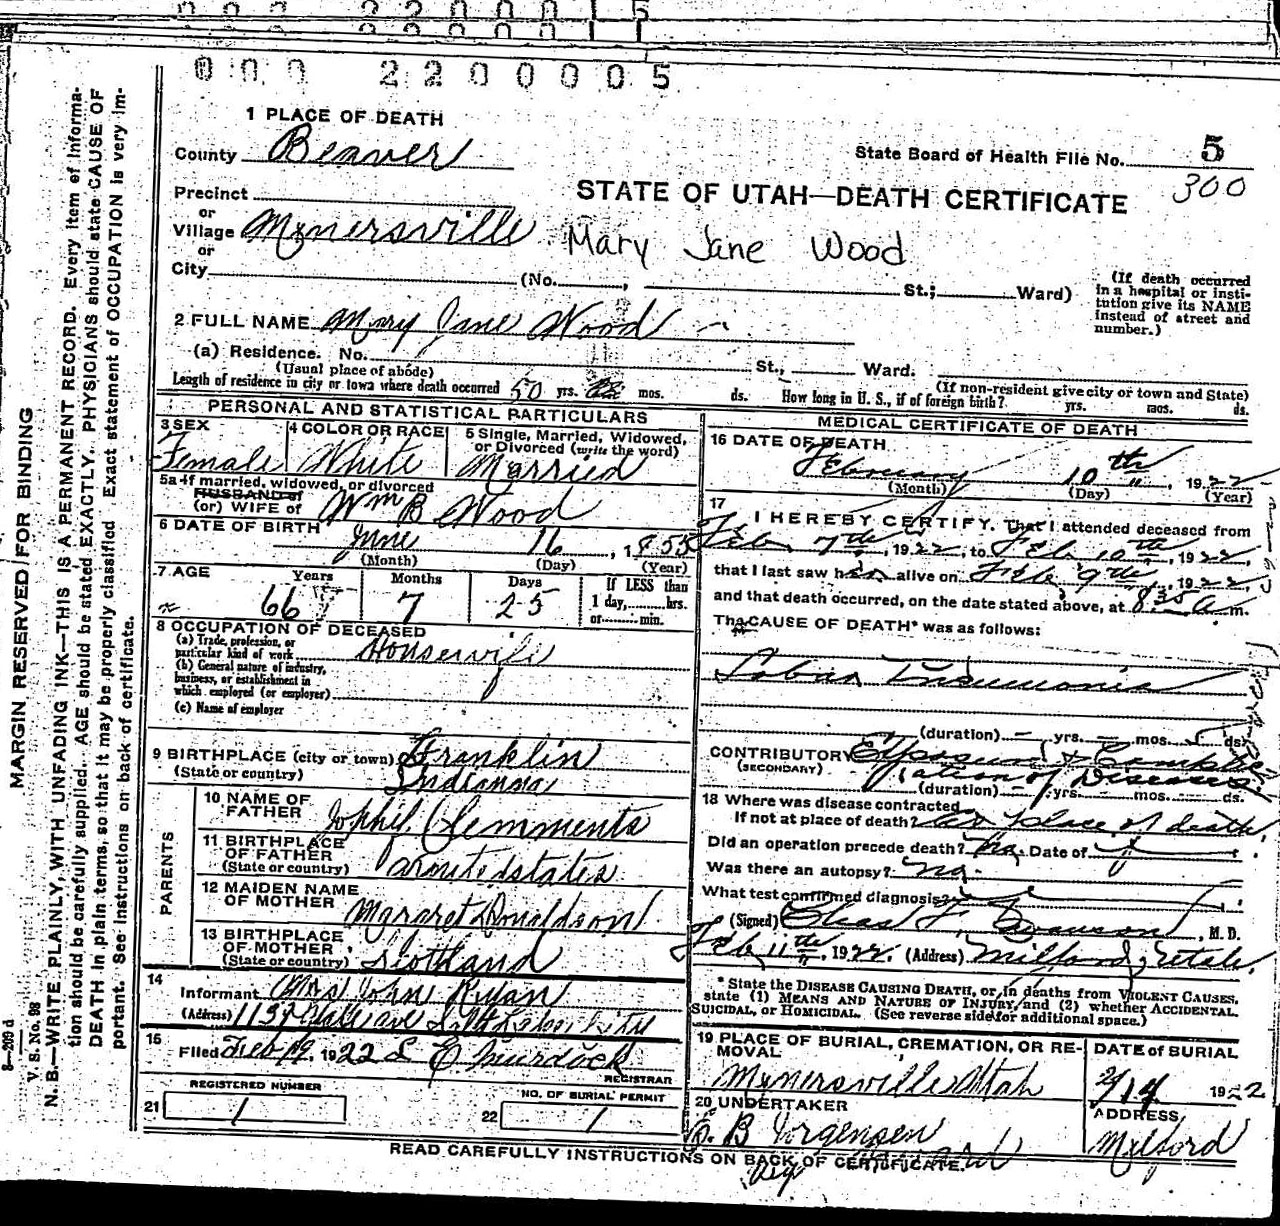 000 2200005
1 PLACE OF DEATH
County Beaver
State Board of Health File No. 5
300
STATE OF UTAH—DEATH CERTIFICATE
Precinct
or
Village Mynersville
Mary Jane Wood
or
City (No. , St.; Ward)
(If death occurred in a hospital or institution give its NAME instead of street and number.)
2 FULL NAME Mary Jane Wood
(a) Residence. No. St., Ward.
(Usual place of abode)
(If non-resident give city or town and State)
Length of residence in city or town where death occurred 50 yrs. mos. ds. How long in U. S., if of foreign birth? yrs. mos. ds.
PERSONAL AND STATISTICAL PARTICULARS
3 SEX
Female
4 COLOR OR RACE
White
5 Single, Married, Widowed, or Divorced (write the word)
Married
5a If married, widowed, or divorced
HUSBAND of
(or) WIFE of Wm B Wood
6 DATE OF BIRTH June 16, 1855
(Month) (Day) (Year)
7 AGE
Years Months Days
66 7 25
If LESS than
1 day, hrs.
or min.
8 OCCUPATION OF DECEASED
(a) Trade, profession, or particular kind of work Housewife
(b) General nature of industry, business, or establishment in which employed (or employer)
(c) Name of employer
9 BIRTHPLACE (city or town) Franklin
(State or country) Indianna
PARENTS
10 NAME OF FATHER Clemments
11 BIRTHPLACE OF FATHER
(State or country)
12 MAIDEN NAME OF MOTHER Margret Donaldson
13 BIRTHPLACE OF MOTHER
(State or country) Scotland
14
Informant Mrs John Ryan
(Address) 1137 Yale ave
15
Filed Feb 19, 1922 L E Murdock
REGISTRAR
REGISTERED NUMBER
21 1
NO. OF BURIAL PERMIT
22 1
MEDICAL CERTIFICATE OF DEATH
16 DATE OF DEATH
February 10th, 1922
(Month) (Day) (Year)
17
I HEREBY CERTIFY, That I attended deceased from
Feb 7th, 1922, to Feb 10th, 1922
that I last saw her alive on Feb 9th, 1922
and that death occurred, on the date stated above, at 8 35 a m.
The CAUSE OF DEATH* was as follows:
Lobar Pneumonia
(duration) — yrs. — mos. 5 ds.
CONTRIBUTORY
(SECONDARY)
(duration) yrs. mos. ds.
18 Where was disease contracted
If not at place of death? at place of death
Did an operation precede death? no. Date of
Was there an autopsy? no.
What test confirmed diagnosis?
(Signed) Chas F. , M. D.
Feb 11th, 1922. (Address) Milford, Utah.
* State the DISEASE CAUSING DEATH, or, in deaths from VIOLENT CAUSES,
state (1) MEANS AND NATURE OF INJURY, and (2) whether ACCIDENTAL,
SUICIDAL, or HOMICIDAL. (See reverse side for additional space.)
19 PLACE OF BURIAL, CREMATION, OR REMOVAL
Mynersville Utah
DATE of BURIAL
2/14 1922
20 UNDERTAKER
B Jorgensen
ADDRESS
Milford
READ CAREFULLY INSTRUCTIONS ON BACK OF CERTIFICATE.
MARGIN RESERVED FOR BINDING
V. S. No. 98
N. B.—WRITE PLAINLY, WITH UNFADING INK—THIS IS A PERMANENT RECORD. Every item of information should be carefully supplied. AGE should be stated EXACTLY. PHYSICIANS should state CAUSE OF DEATH in plain terms, so that it may be properly classified. Exact statement of OCCUPATION is very important. See instructions on back of certificate.